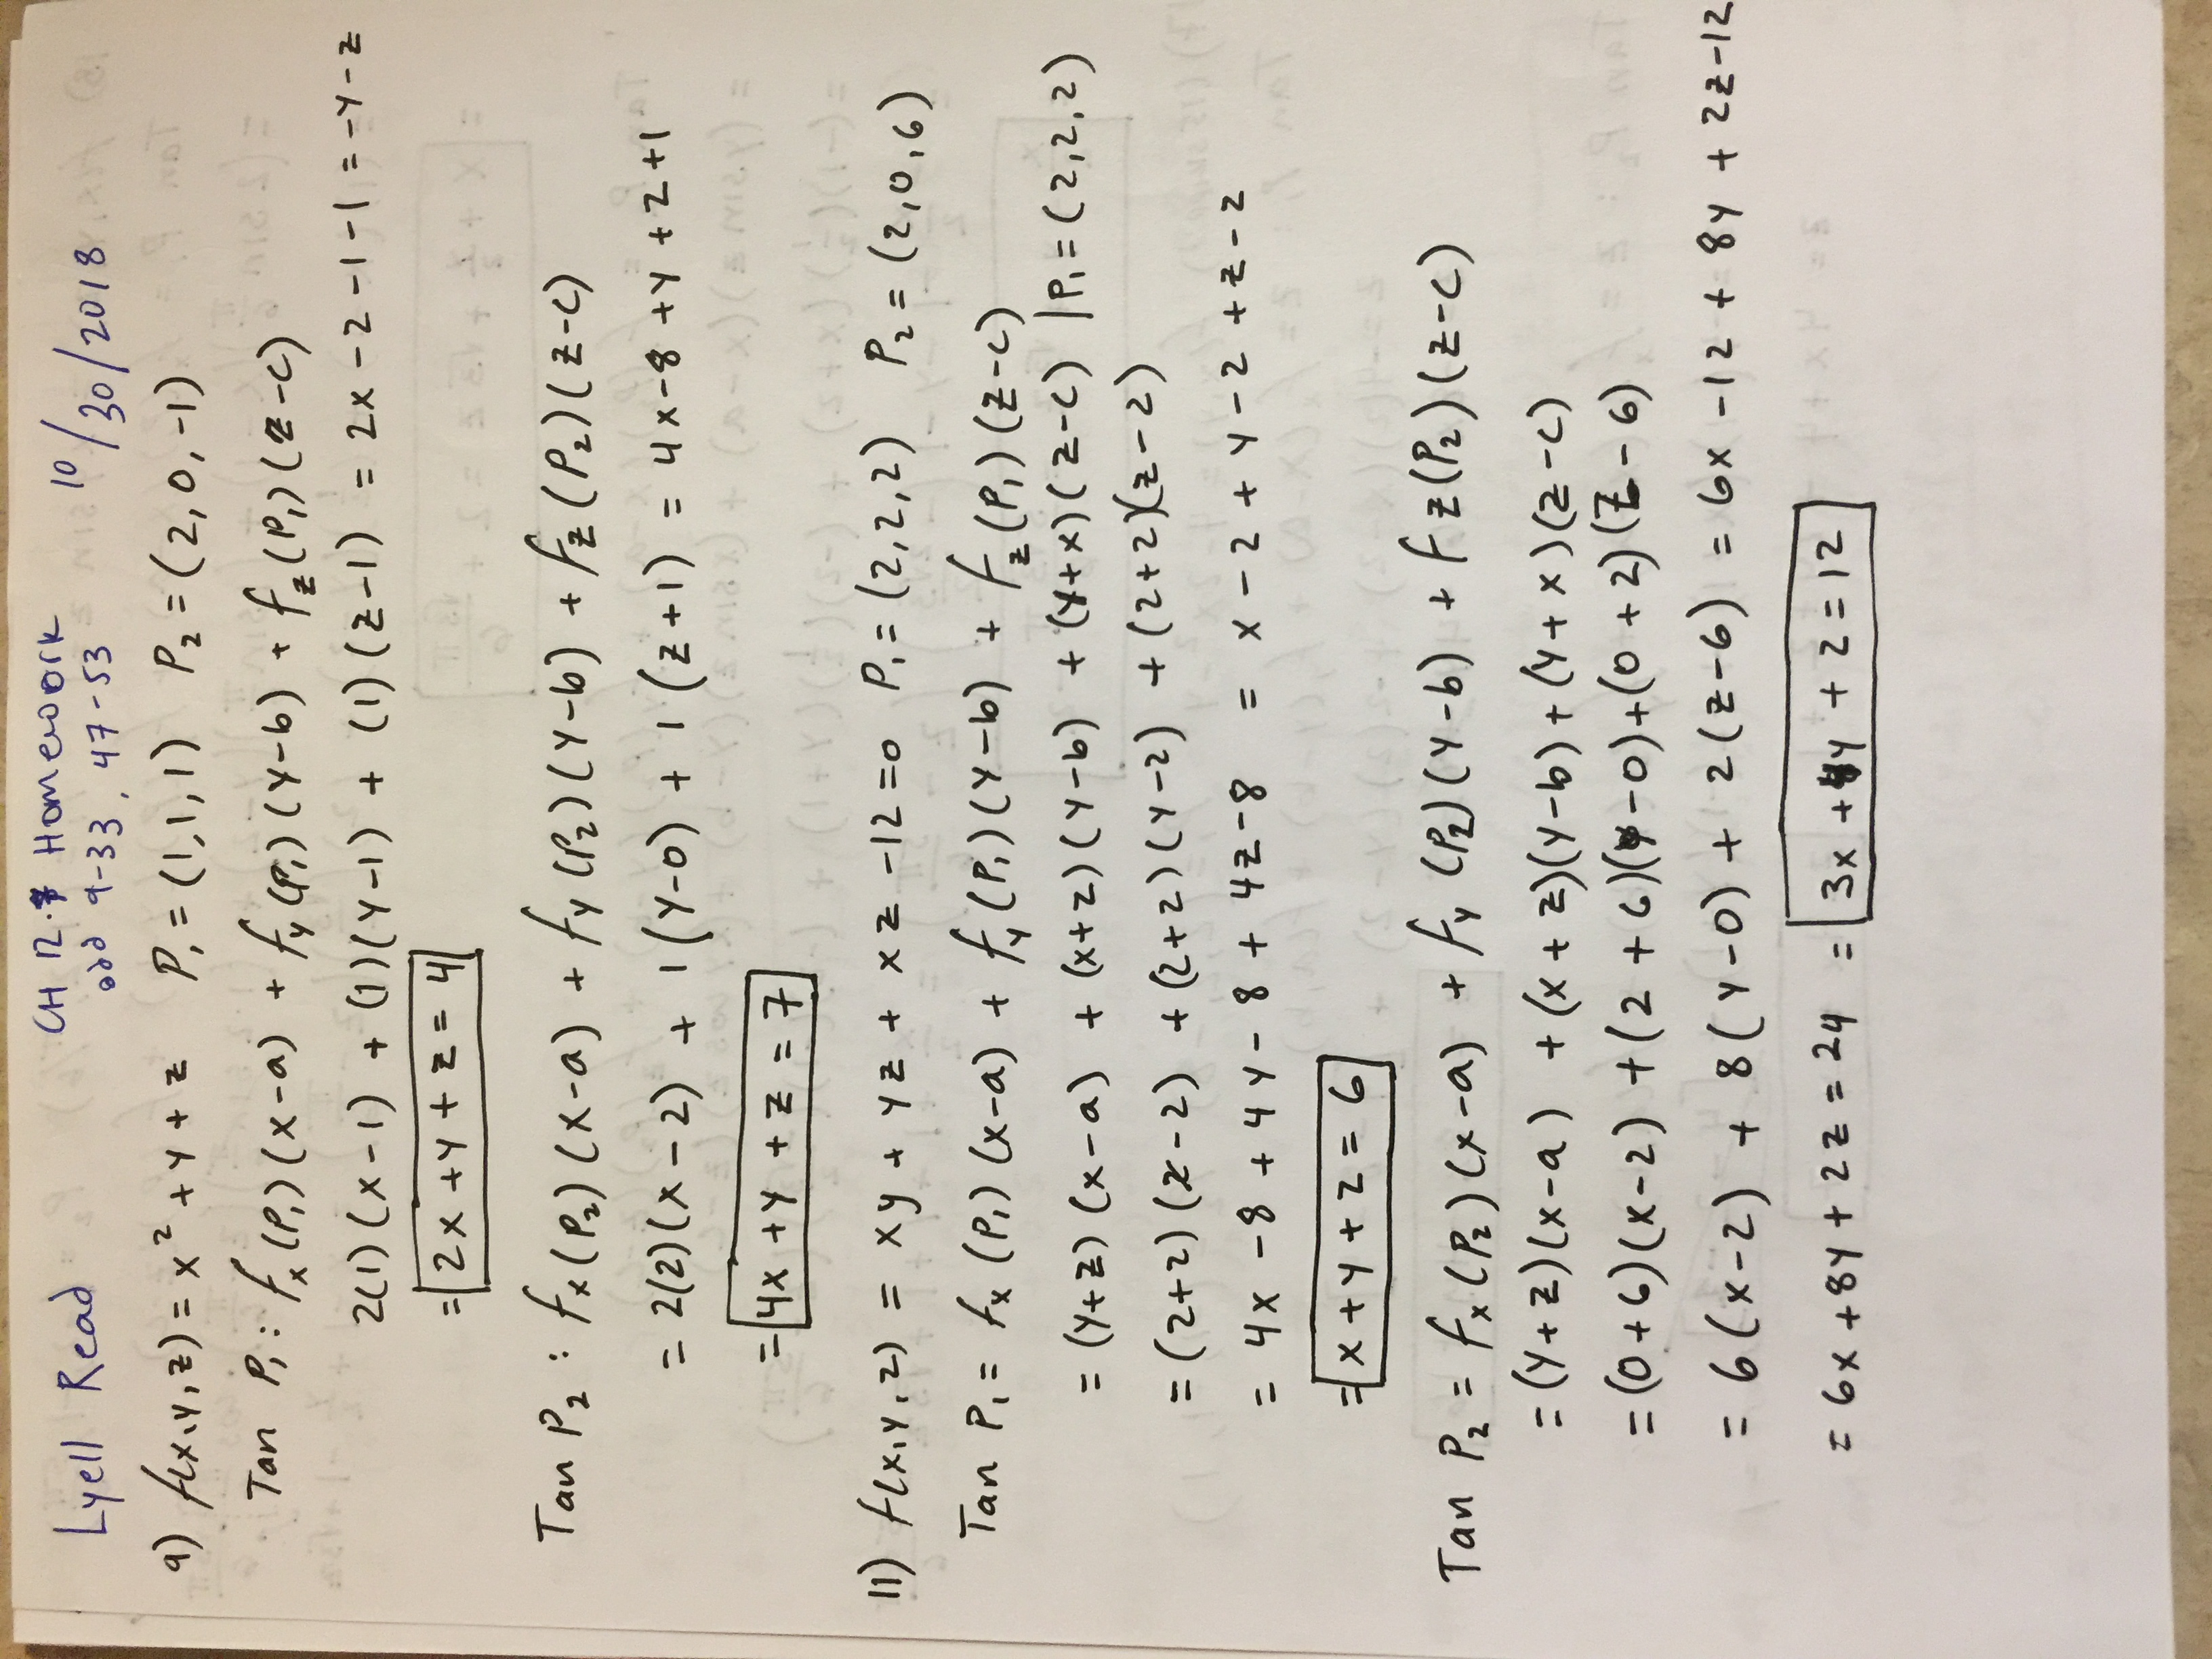 Lyell Read
CH 12. Homework
odd 9-33, 47-53
10/30/2018
9) f(x,y,z) = x² + y + z   P₁ = (1,1,1)   P₂ = (2, 0, -1)
Tan P₁: fₓ(P₁)(x-a) + f_y(P₁)(y-b) + f_z(P₁)(z-c)
2(1)(x-1) + (1)(y-1) + (1)(z-1) = 2x - 2 - 1 - 1 = -y - z
= 2x + y + z = 4
Tan P₂ : fₓ(P₂)(x-a) + f_y(P₂)(y-b) + f_z(P₂)(z-c)
= 2(2)(x-2) + 1(y-0) + 1(z+1) = 4x-8 + y + z + 1
= 4x + y + z = 7
11) f(x,y,z) = xy + yz + xz - 12 = 0   P₁ = (2,2,2)   P₂ = (2,0,6)
Tan P₁ = fₓ(P₁)(x-a) + f_y(P₁)(y-b) + f_z(P₁)(z-c)
= (y+z)(x-a) + (x+z)(y-b) + (y+x)(z-c) | P₁ = (2,2,2)
= (2+2)(x-2) + (2+2)(y-2) + (2+2)(z-2)
= 4x - 8 + 4y - 8 + 4z - 8 = x - 2 + y - 2 + z - 2
= x + y + z = 6
Tan P₂ = fₓ(P₂)(x-a) + f_y(P₂)(y-b) + fz(P₂)(z-c)
= (y+z)(x-a) + (x+z)(y-b) + (y+x)(z-c)
= (0+6)(x-2) + (2+6)(y-0) + (0+2)(z-6)
= 6(x-2) + 8(y-0) + 2(z-6) = 6x - 12 + 8y + 2z - 12
= 6x + 8y + 2z = 24 = 3x + 4y + z = 12